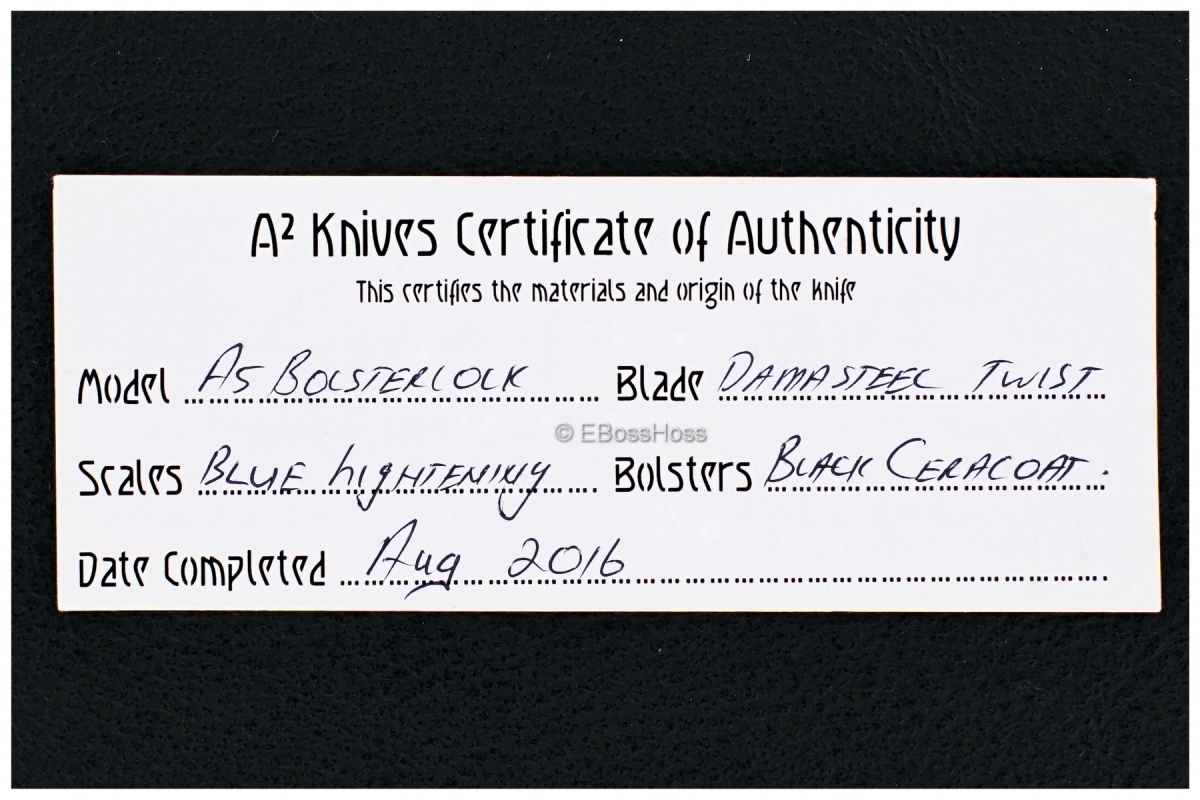 A² Knives Certificate of Authenticity
This certifies the materials and origin of the knife
Model A5 BOLSTERLOCK Blade DAMASTEEL TWIST
© EBossHoss
Scales BLUE LIGHTENING Bolsters BLACK CERACOAT.
Date Completed Aug 2016